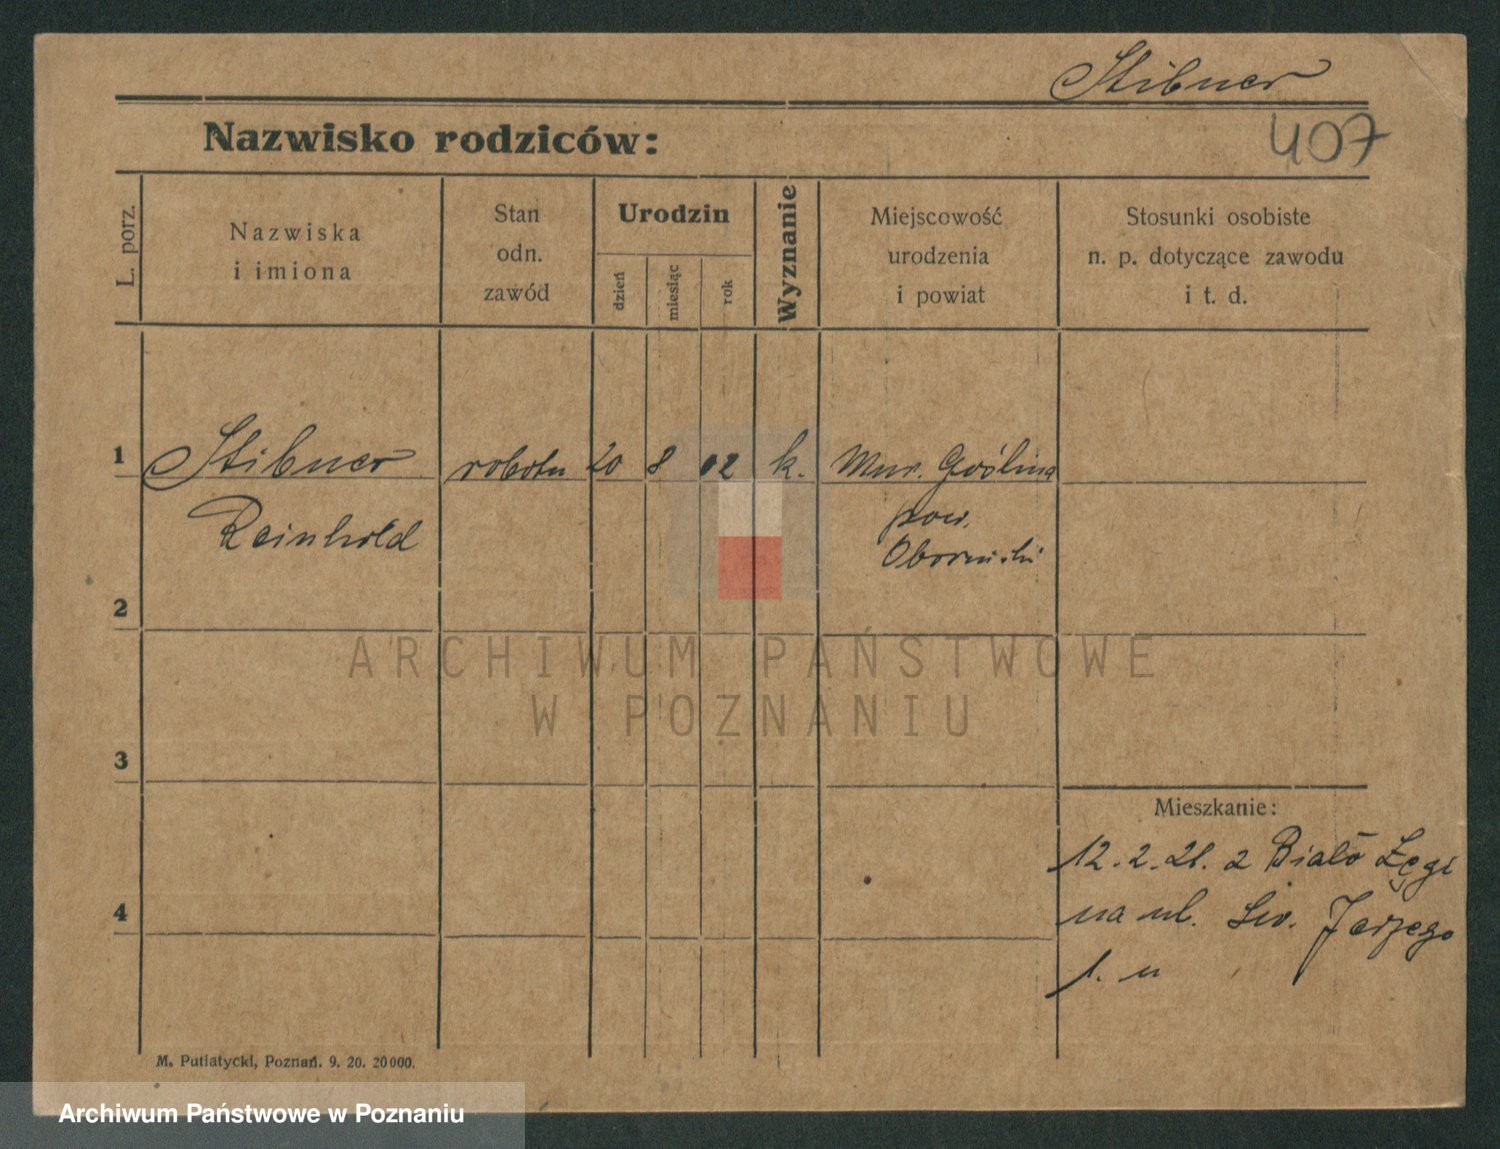 Stibner
407
Nazwisko rodziców:
L. porz.
Nazwiska
i imiona
Stan
odn.
zawód
Urodzin
dzień
miesiąc
rok
Wyznanie
Miejscowość
urodzenia
i powiat
Stosunki osobiste
n. p. dotyczące zawodu
i t. d.
1 Stibner robotn 20 8 02 k. Mur. Goślina
Reinhold pow.
Obornicki
2
ARCHIWUM PAŃSTWOWE
W POZNANIU
3
Mieszkanie:
12. 2. 21. z Biało Łęgi
4
na ul. Św. Jerzego
M. Putiatycki, Poznań. 9. 20. 20000.
Archiwum Państwowe w Poznaniu